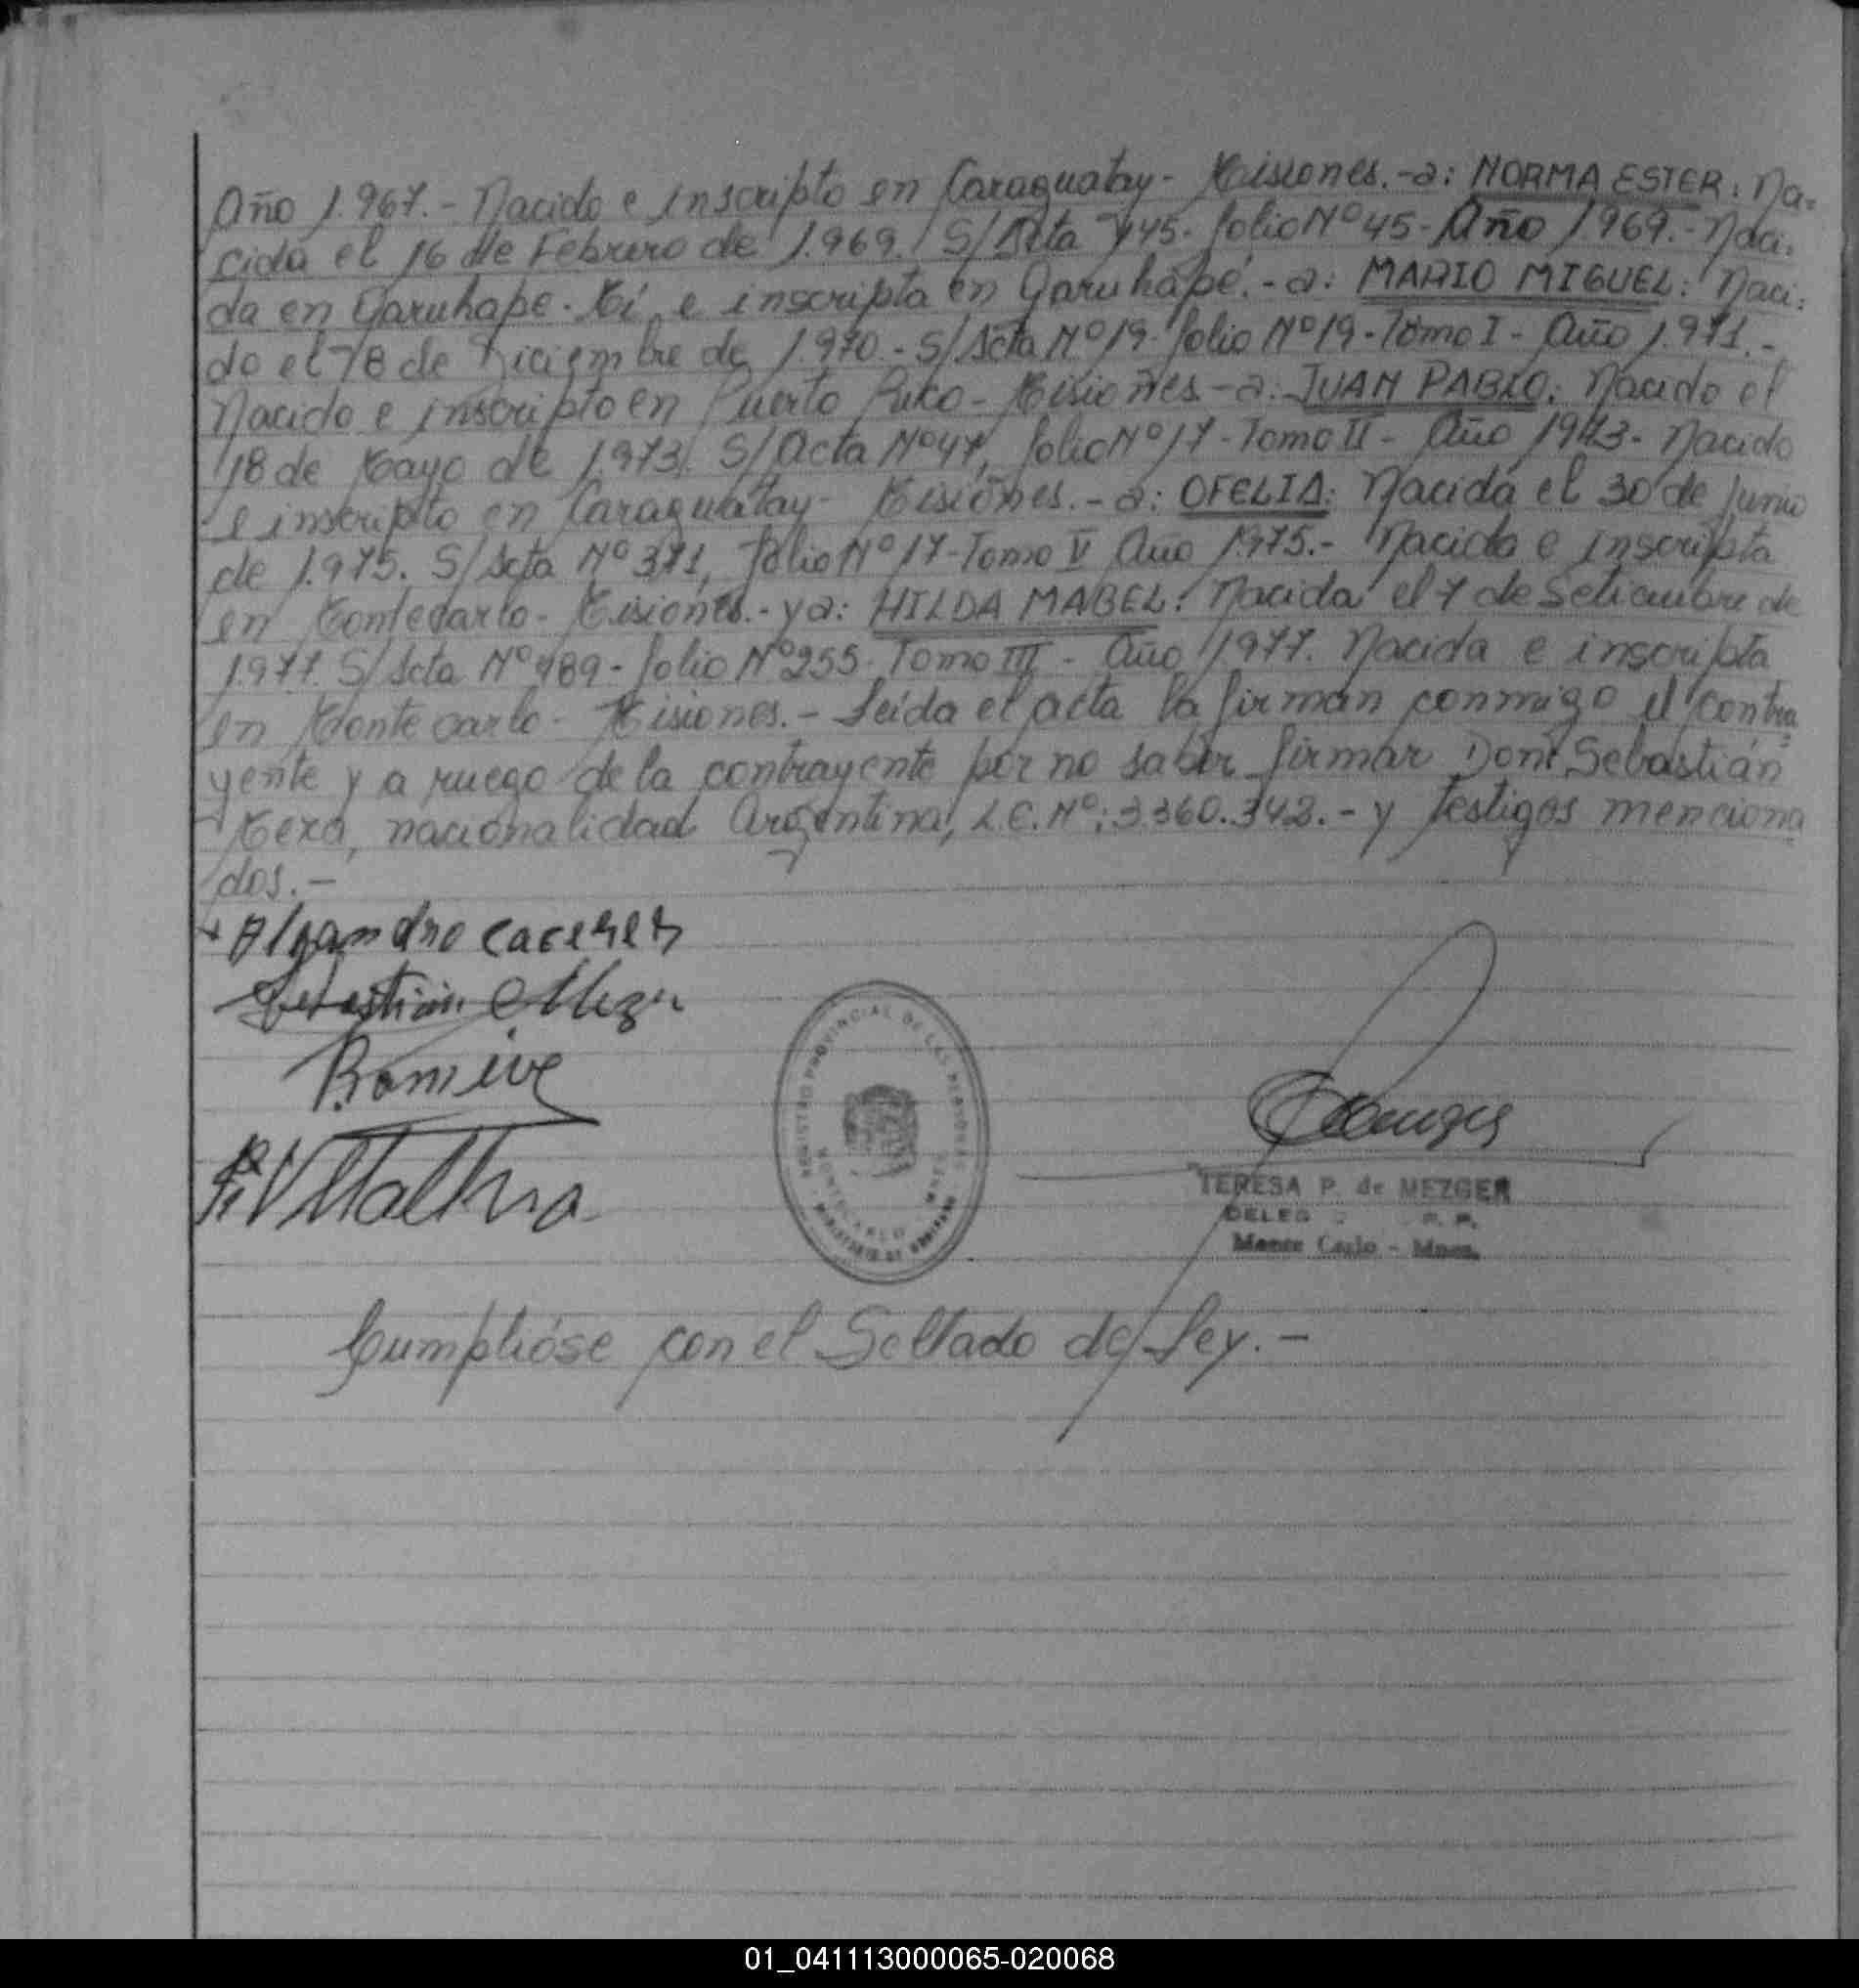 Año 1.967.- Nacido e inscripto en Caraguatay- Misiones.-a: NORMA ESTER: Na-
cida el 16 de Febrero de 1.969. S/Acta 445- folio Nº 45- Año 1.969.- Naci-
da en Garuhape. Mi. e inscripta en Garuhapé.-a: MARIO MIGUEL: Naci-
do el 78 de Diciembre de 1.970.- S/Acta Nº 19- folio Nº 19- Tomo I- Año 1.971.-
Nacido e inscripto en Puerto Rico- Misiones-a: JUAN PABLO: Nacido el
18 de Mayo de 1.973. S/Acta Nº 47, folio Nº 17- Tomo II- Año 1973- Nacido
e inscripto en Caraguatay- Misiones.-a: OFELIA: Nacida el 30 de Junio
de 1.975. S/Acta Nº 371, folio Nº 17- Tomo V Año 1975.- Nacida e inscripta
en Montecarlo- Misiones.-y a: HILDA MABEL: Nacida el 7 de Setiembre de
1.977. S/Acta Nº 989- folio Nº 255- Tomo III- Año 1.977. Nacida e inscripta
en Monte carlo- Misiones.- Leída el acta la firman conmigo el contra
yente y a ruego de la contrayente por no saber firmar Don Sebastián
nacionalidad Argentina, L.E. Nº: 3.360.342.- y testigos menciona
dos.-
Alejandro caceres
Sebastián
R. Villalba
REGISTRO PROVINCIAL DE LAS PERSONAS
TERESA P. de MEZGER
Monte Carlo - Mnes.
Cumplióse con el Sellado de Ley.-
01_041113000065-020068